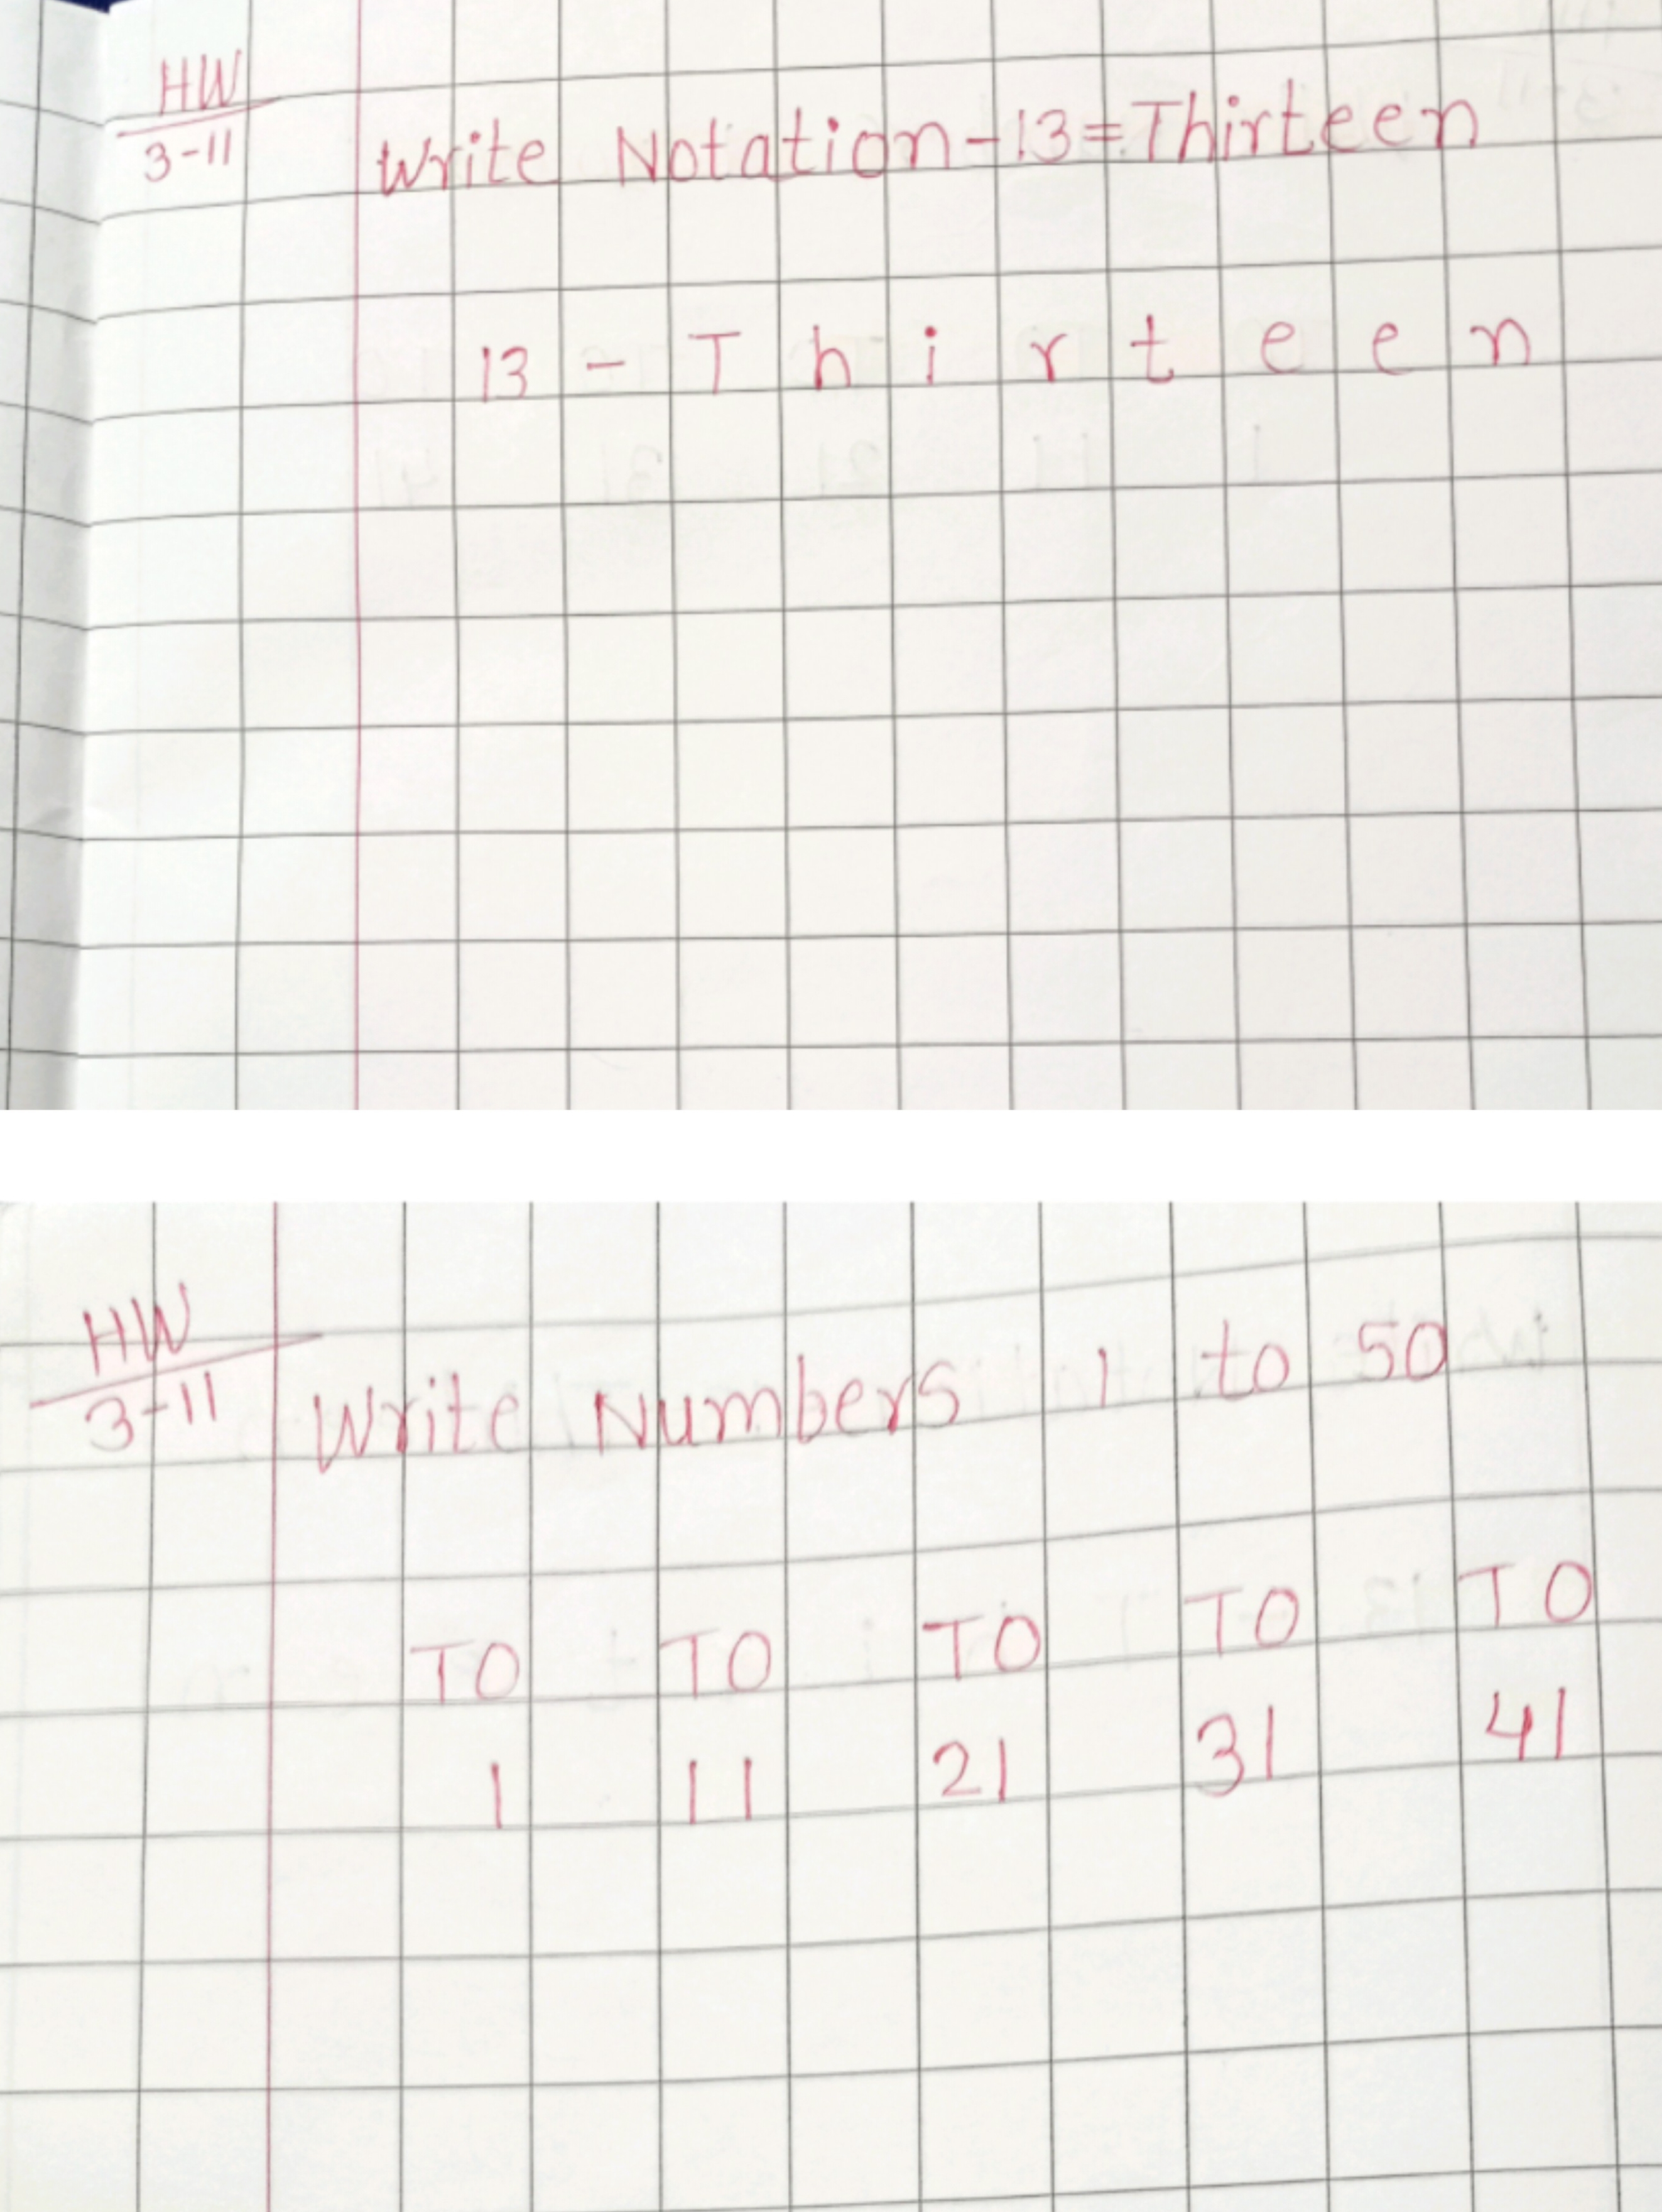 HW
3-11
Write Notation-13=Thirteen
13 - T h i r t e e n
HW
3-11
Write Numbers 1 to 50
TO TO TO TO TO
1 11 21 31 41